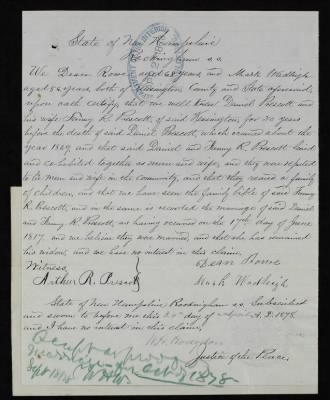 State of New Hampshire
Rockingham s.s.
We Dean Rowe aged 68 years and Mark Wadleigh
aged 56 years, both of Kensington County and State aforesaid,
upon oath certify, that we well knew Daniel Prescott and
his wife Fanny K. Prescott, of said Kensington, for 30 years
before the death of said Daniel Prescott, which occurred about the
year 1859 and that said Daniel and Fanny K. Prescott lived
and co-habited together as man and wife, and they were reputed
to be man and wife in the community, and that they reared a family
of children, and that we have seen the family bible of said Fanny
K. Prescott, and in the same is recorded the marriage of said Daniel
and Fanny K. Prescott as having occurred on the 17th day of June
1817, and we believe they were married, and that she has remained
his widow, and we have no interest in this claim.
Witness Dean Rowe
Arthur R. Prescott
Mark Wadleigh
State of New Hampshire Rockingham s.s. Subscribed
and sworn to before me this day of April A.D. 1878.
and I have no interest in this claim.
Justice of the Peace.
Accept as proof
Marriage Act of 1878
Sept